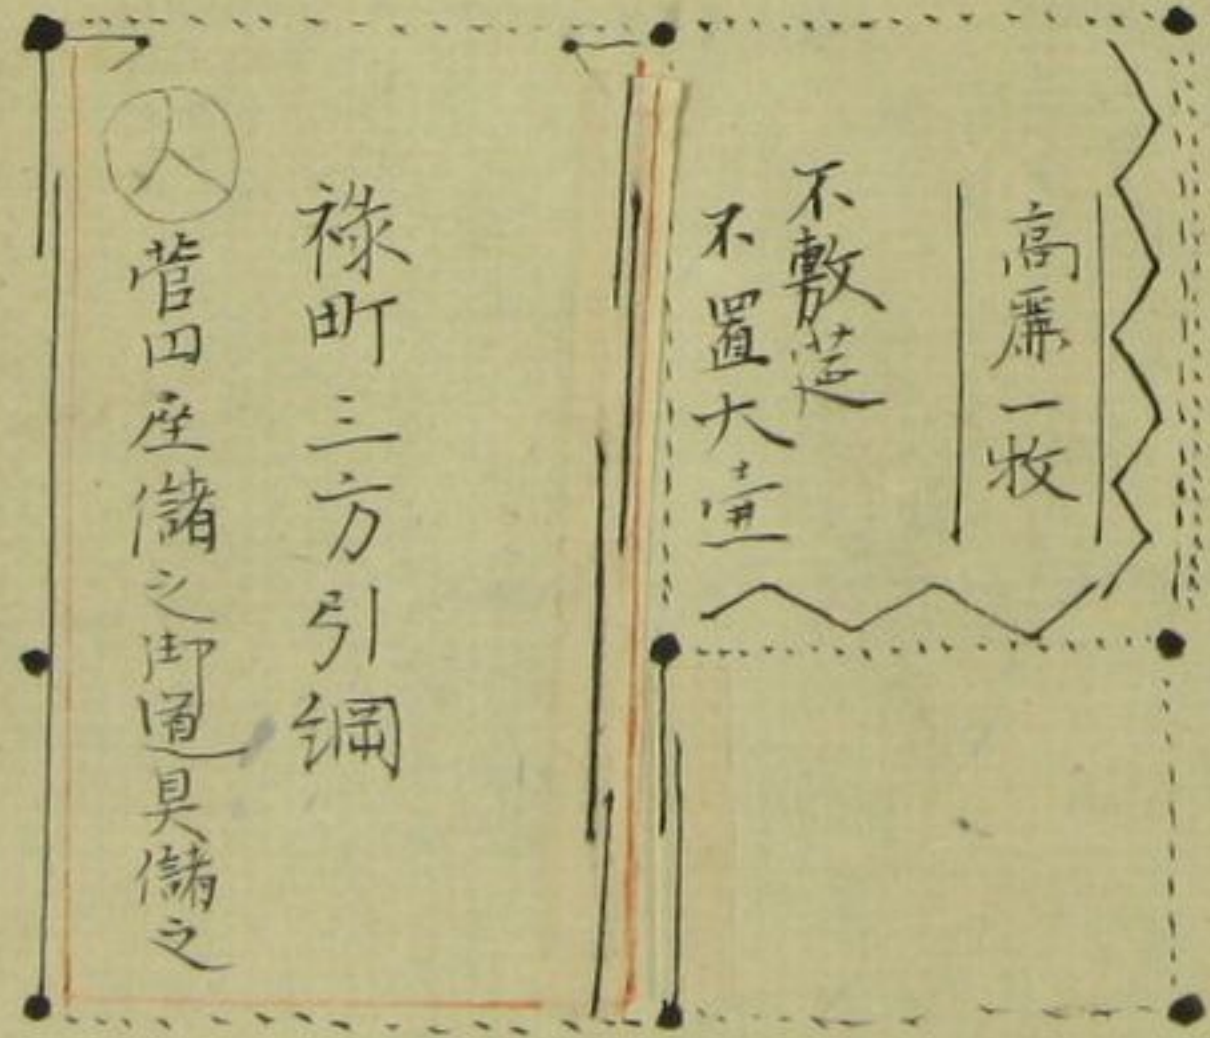 高麗一枚
不敷莚
不置大壷
禄町三方引綱
人
菅円座儲之御道具儲之